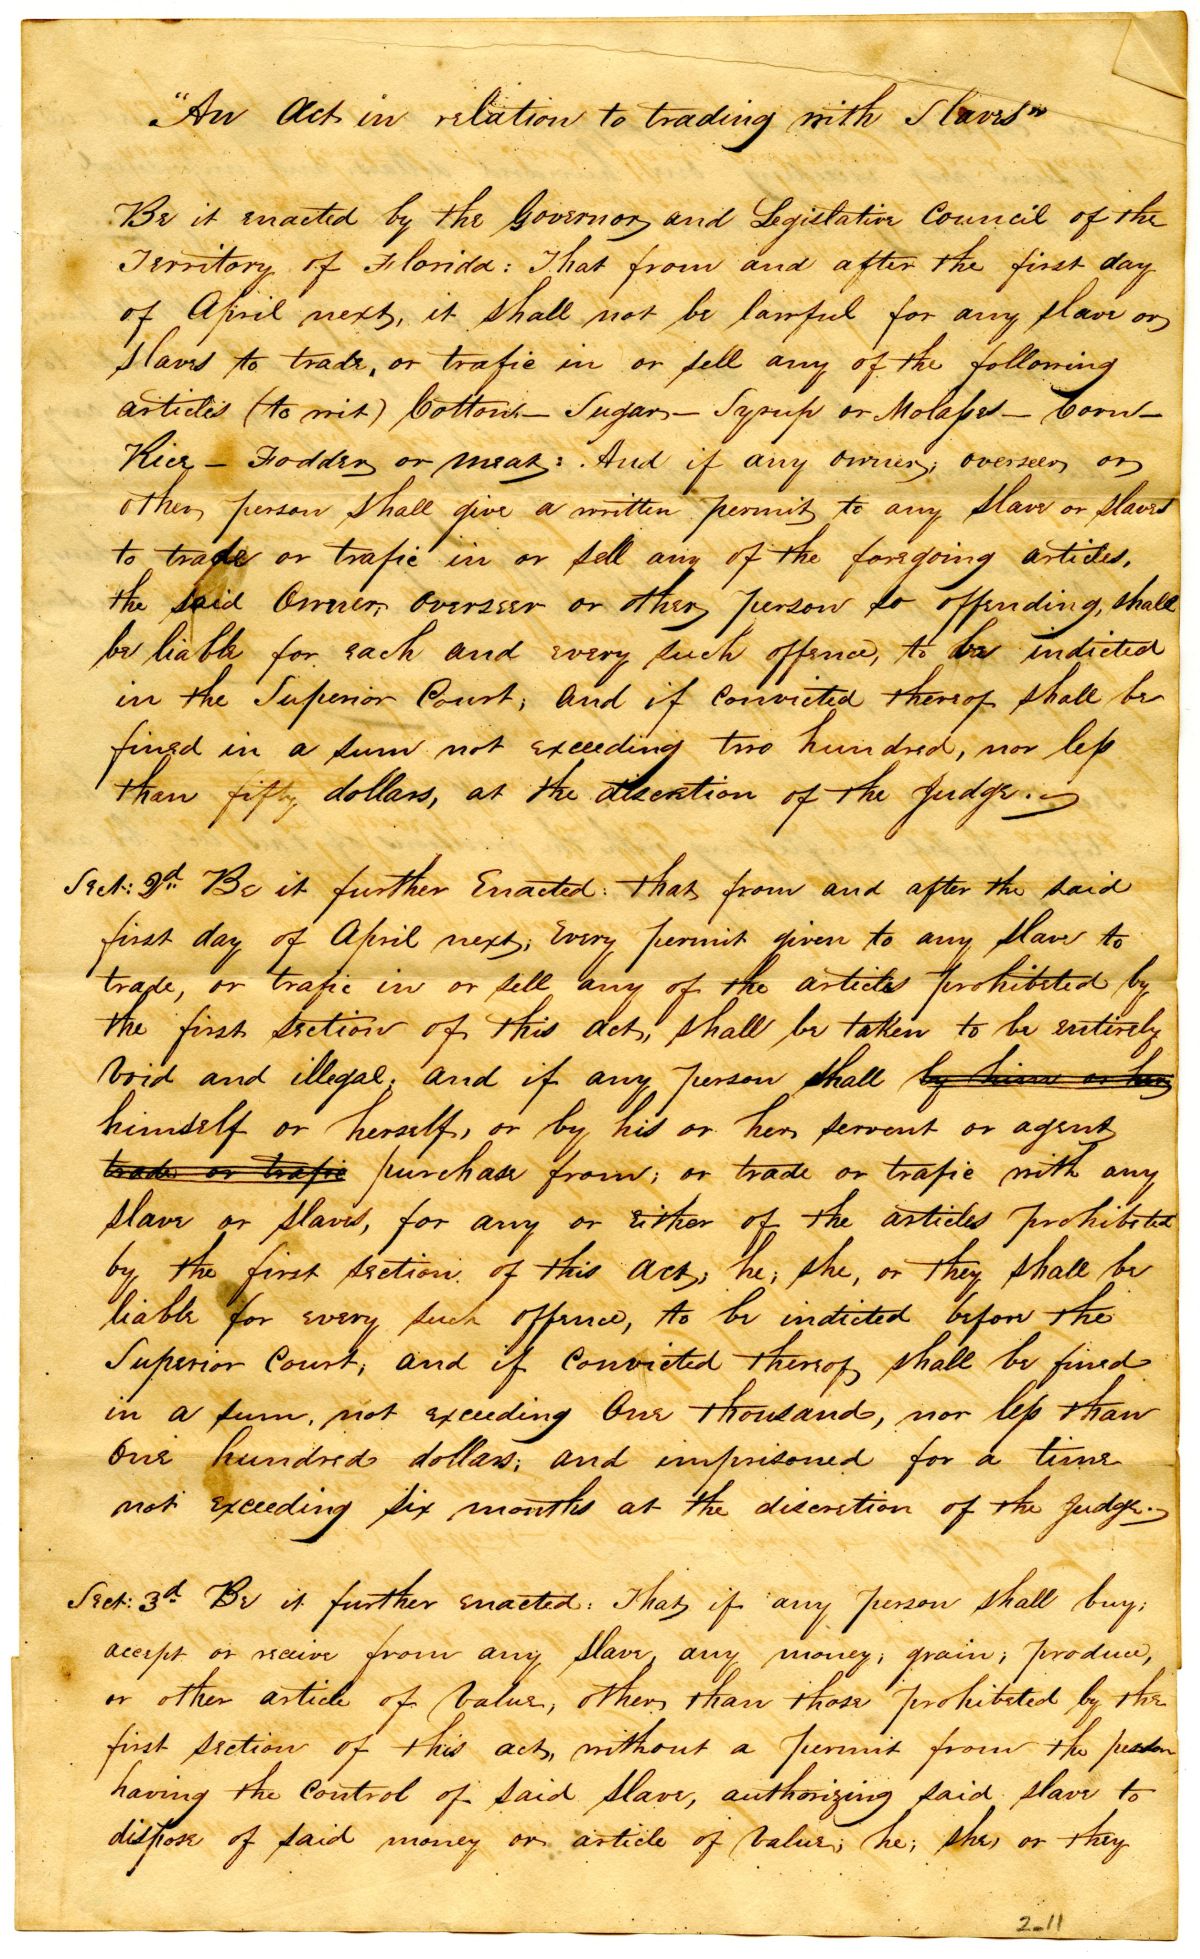 "An Act in relation to trading with Slaves"
Be it enacted by the Governor and Legislative Council of the
Territory of Florida: That from and after the first day
of April next, it shall not be lawful for any slave or
slaves to trade, or trafic in or sell any of the following
articles (to wit) Cotton — Sugar — Syrup or Molasses — Corn —
Rice — Fodder or meat: And if any owner, overseer or
other person shall give a written permit to any slave or slaves
to trade or trafic in or sell any of the foregoing articles,
the said Owner, overseer or other person so offending, shall
be liable for each and every such offence, to be indicted
in the Superior Court; and if convicted thereof shall be
fined in a sum not exceeding two hundred, nor less
than fifty dollars, at the discretion of the Judge.
Sect: 2d. Be it further Enacted: that from and after the said
first day of April next, Every permit given to any slave to
trade, or trafic in or sell any of the articles prohibeted by
the first section of this act, shall be taken to be entirely
void and illegal; and if any person shall by him or her
himself or herself, or by his or her servent or agent
trade or trafic purchase from; or trade or trafic with any
slave or slaves, for any or either of the articles prohibeted
by the first section of this act; he; she, or they shall be
liable for every such offence, to be indicted before the
Superior Court; and if convicted thereof shall be fined
in a sum, not exceeding One thousand, nor less than
One hundred dollars; and imprisoned for a time
not exceeding six months at the discretion of the Judge.
Sect: 3d. Be it further enacted: That if any person shall buy;
accept or receive from any slave, any money; grain; produce,
or other article of value, other than those prohibeted by the
first section of this act, without a permit from the person
having the control of said slave, authorizing said slave to
dispose of said money or article of value; he; she, or they
2-11